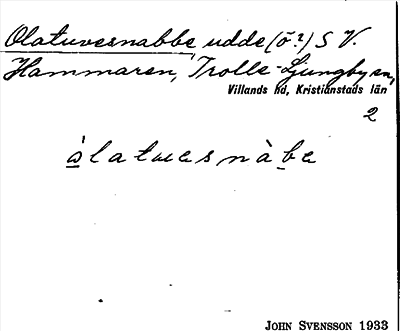 Olatuvesnabbe, udde (ö?) S V.
Hammaren, Trolle-Ljungby sn,
Villands hd, Kristianstads län
2
àlatuesnàbe
John Svensson 1933